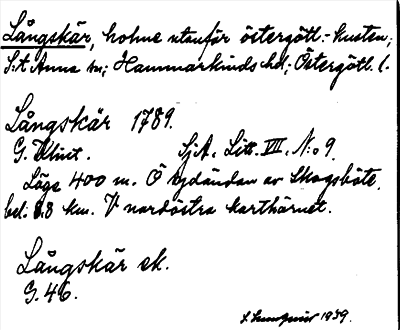 Långskär, holme utanför östergötl.-kusten;
S:t Anna sn; Hammarkinds hd; Östergötl. l.
Långskär 1789.
G. Klint. SjA. Litt. VII. N:o 9.
Läge 400 m. Ö sydändan av Skogsböte,
bel: 8.8 km. V nordöstra karthörnet.
Långskär ek.
G. 46.
1939.